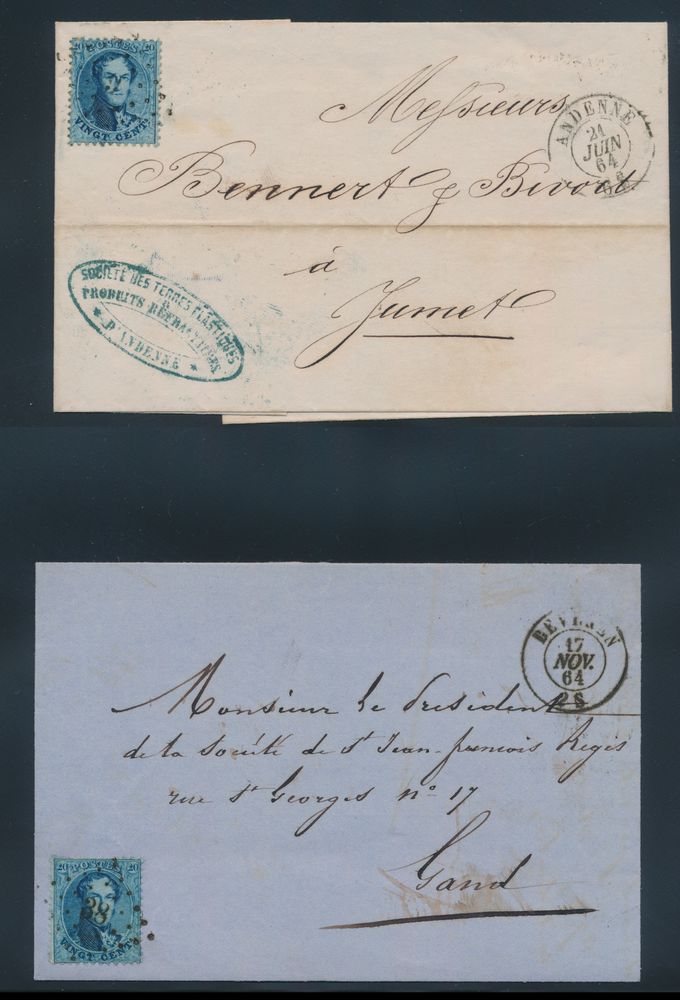 20 POSTES 20
VINGT CENT.
Messieurs
Bennert & Bivort
à
Jumet
ANDENNE
21
JUIN
64
6S
SOCIÉTÉ DES TERRES PLASTIQUES
&
PRODUITS RÉFRACTAIRES
* D'ANDENNE *
BEVEREN
17
NOV.
64
2S
Monsieur le President
de la Société de St Jean-francois Régis
rue St Georges no 17
Gand
20 POSTES 20
38
VINGT CENT.